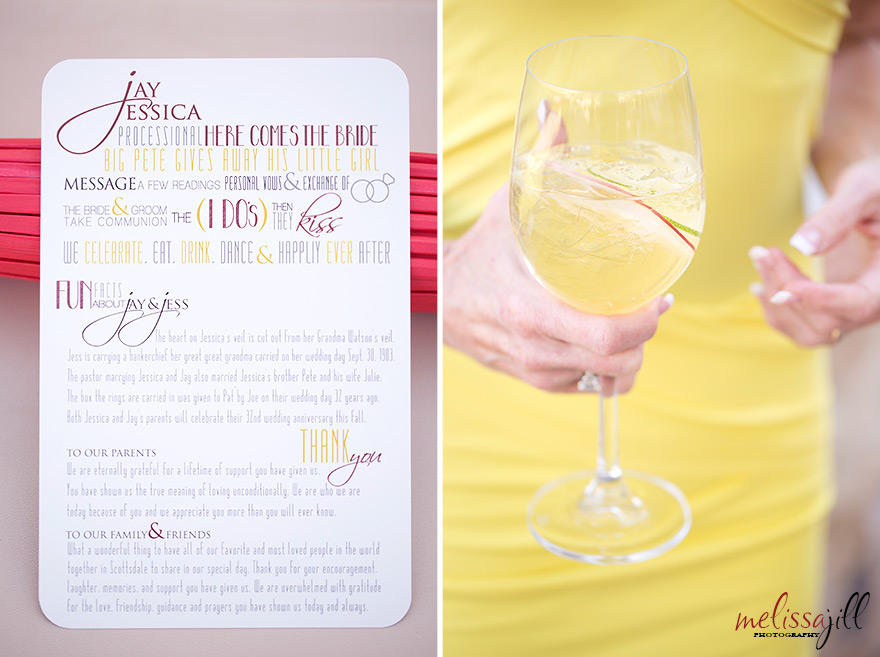 JAY
JESSICA
PROCESSIONAL HERE COMES THE BRIDE
BIG PETE GIVES AWAY HIS LITTLE GIRL
MESSAGE A FEW READINGS PERSONAL VOWS & EXCHANGE OF
THE BRIDE & GROOM TAKE COMMUNION THE (I DO's) THEN THEY kiss
WE CELEBRATE. EAT. DRINK. DANCE & HAPPLIY EVER AFTER
FUN FACTS ABOUT JAY & JESS
The heart on Jessica's veil is cut out from her Grandma Watson's veil.
Jess is carrying a hankerchief her great great grandma carried on her wedding day Sept. 30, 1903.
The pastor marrying Jessica and Jay also married Jessica's brother Pete and his wife Julie.
The box the rings are carried in was given to Pat by Joe on their wedding day 32 years ago.
Both Jessica and Jay's parents will celebrate their 32nd wedding anniversary this Fall.
THANK you
TO OUR PARENTS
We are eternally grateful for a lifetime of support you have given us.
You have shown us the true meaning of loving unconditionally. We are who we are
today because of you and we appreciate you more than you will ever know.
TO OUR FAMILY & FRIENDS
What a wonderful thing to have all of our favorite and most loved people in the world
together in Scottsdale to share in our special day. Thank you for your encouragement,
laughter, memories, and support you have given us. We are overwhelmed with gratitude
for the love, friendship, guidance and prayers you have shown us today and always.
melissa jill
PHOTOGRAPHY